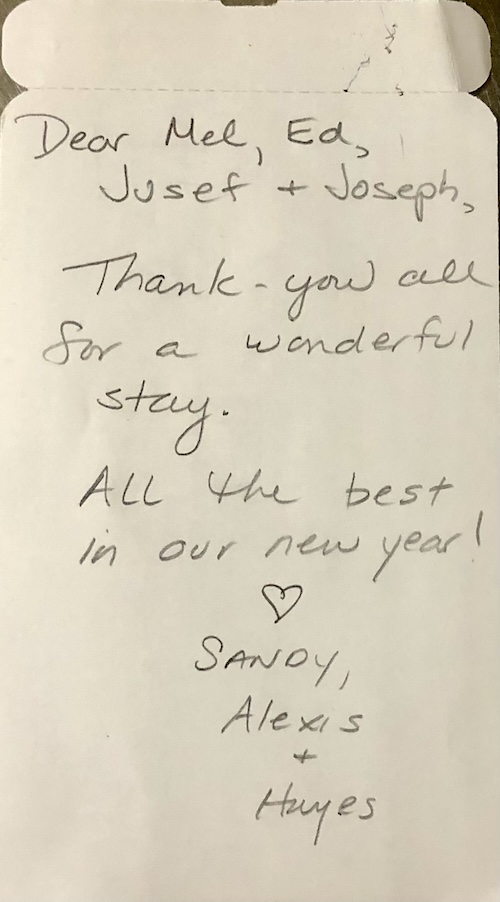 Dear Mel, Ed,
Jusef + Joseph,
Thank-you all
for a wonderful
stay.
ALL the best
in our new year!
♡
SANDY,
Alexis
+
Hayes